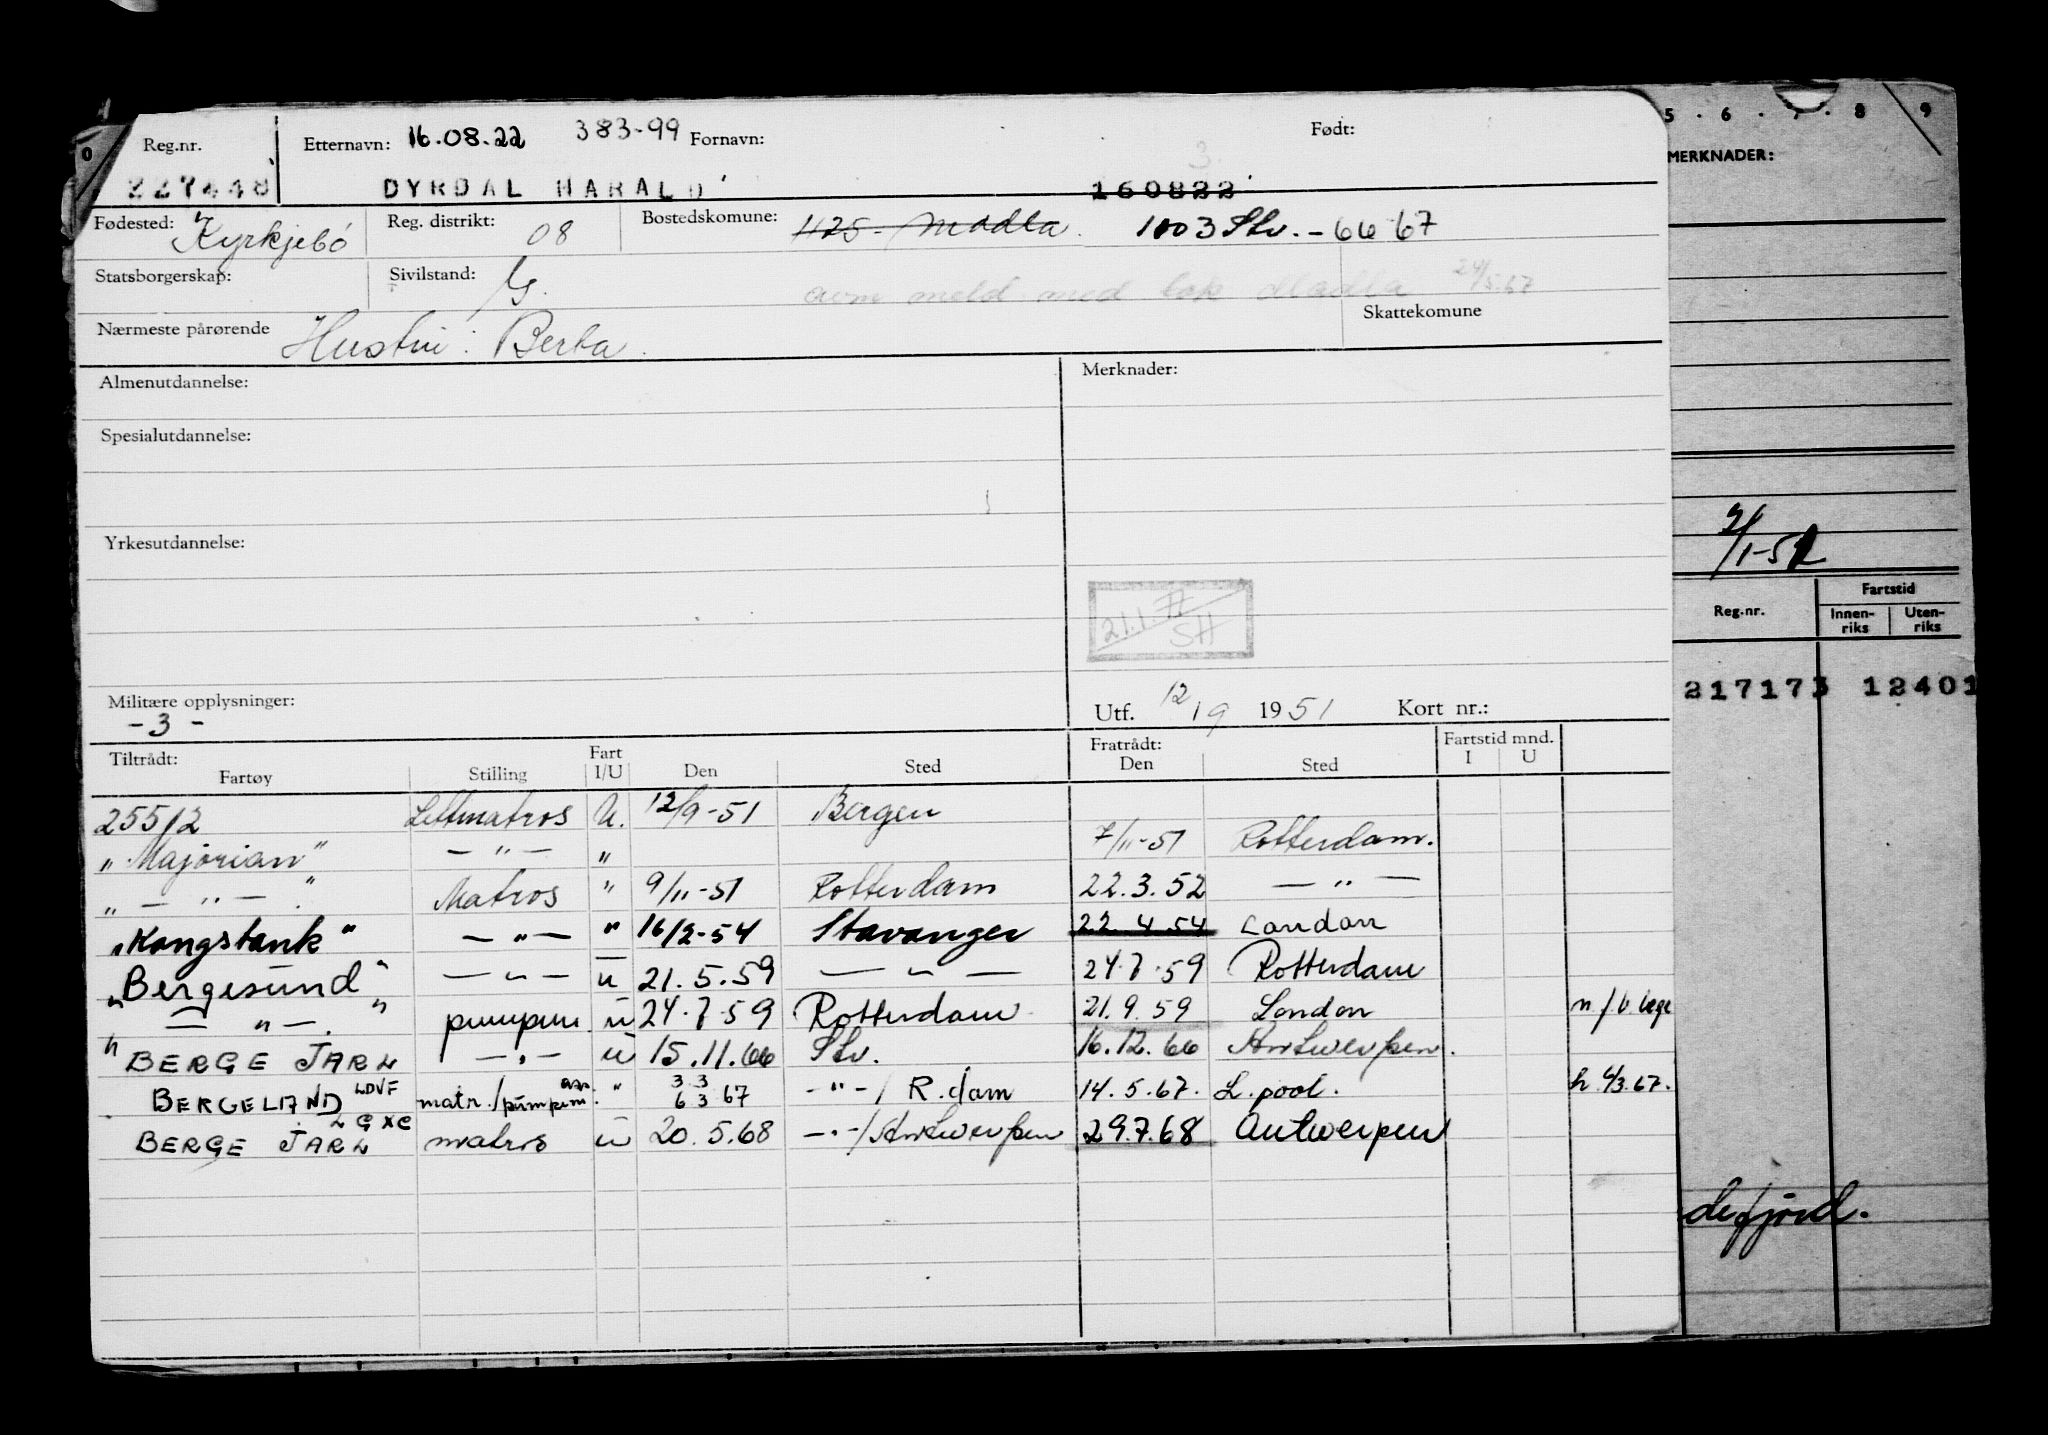 5 . 6 . 7 . 8 9
Reg.nr. Etternavn: 16.08.22 383-99 Fornavn: Født:
0 MERKNADER:
227448 DYRDAL HARALD 160822
Fødested: Kyrkjebö Reg. distrikt: 08 Bostedskomune: 1125 - Madla. 1103 Stv. - 66 67
Statsborgerskap: Sivilstand: G. meld med bok Madla 24/5.67
Nærmeste pårørende Hustru: Berta. Skattekomune
Almenutdannelse: Merknader:
Spesialutdannelse:
9/1-52
Yrkesutdannelse:
Fartstid
Reg.nr. Innen-riks Uten-riks
21.1 77 SH
217173 12401
Militære opplysninger:
- 3 - Utf. 12/9 1951 Kort nr.:
Tiltrådt: Fart Fratrådt: Fartstid mnd.
Fartøy Stilling I/U Den Sted Den Sted I U
25512 Lettmatros U. 12/9-51 Bergen
"Majorian" - " - " 7/11-51 Rotterdam.
" - " - " Matros " 9/11-51 Rotterdam 22.3.52 - " -
"Kongstank" - " - " 16/2-54 Stavanger 22.4.54 London
"Bergesund" - " - u 21.5.59 - " - 24.7.59 Rotterdam
" - " - . " pumpm. u 24.7.59 Rotterdam 21.9.59 London n/b lege
" BERGE JARL - " - u 15.11.66 Stv. 16.12.66 Antwerpen.
BERGELAND LDVF matr./ass. pumpem. " 3.3 6.3 67 - " - / R.dam 14.5.67. L.pool. h 6/3.67.
BERGE JARL LGXC matros u 20.5.68 - " - / Antwerpen 29.7.68 Antwerpen
defjord.